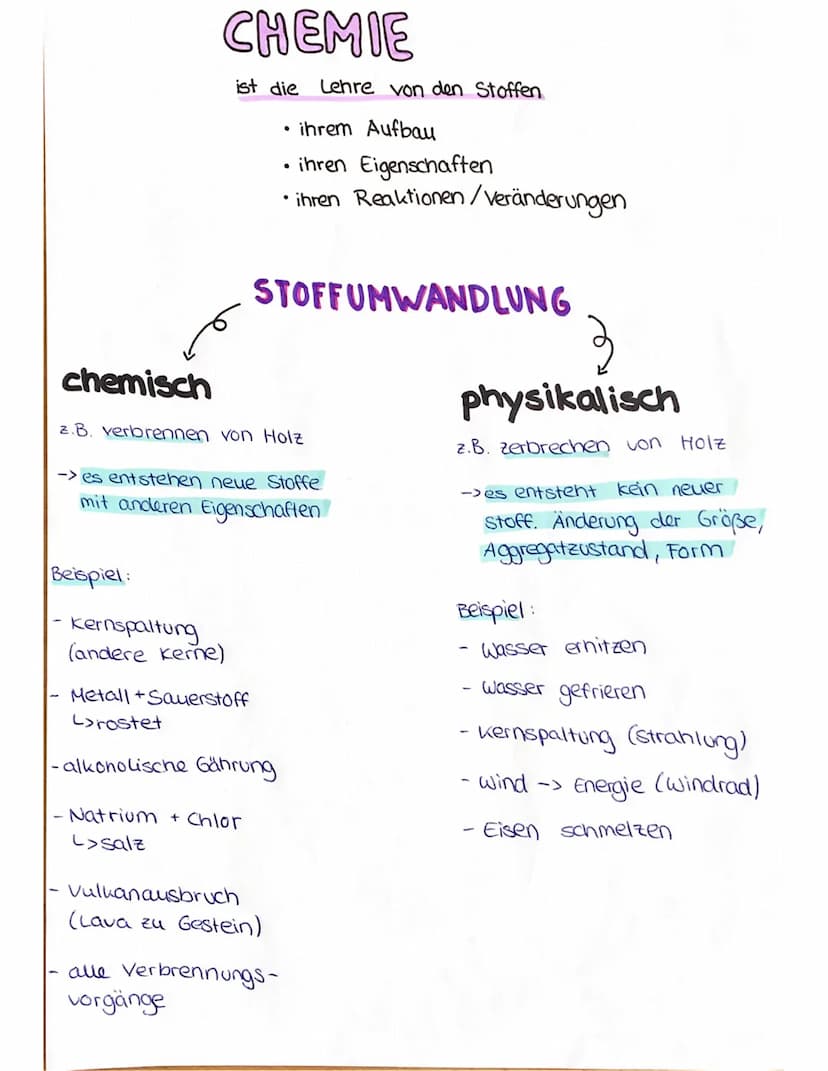 CHEMIE
ist die Lehre von den Stoffen
• ihrem Aufbau
• ihren Eigenschaften
• ihren Reaktionen/Veränderungen
STOFFUMWANDLUNG
chemisch
z.B. verbrennen von Holz
-> es entstehen neue Stoffe
mit anderen Eigenschaften
Beispiel:
- Kernspaltung
(andere Kerne)
- Metall + Sauerstoff
↳rostet
- alkoholische Gährung
- Natrium + Chlor
↳salz
- Vulkanausbruch
(Lava zu Gestein)
- alle Verbrennungs-
vorgänge
physikalisch
z.B. zerbrechen von Holz
-> es entsteht kein neuer
Stoff. Änderung der Größe,
Aggregatzustand, Form
Beispiel:
- Wasser erhitzen
- Wasser gefrieren
- Kernspaltung (Strahlung)
- Wind -> Energie (Windrad)
- Eisen schmelzen